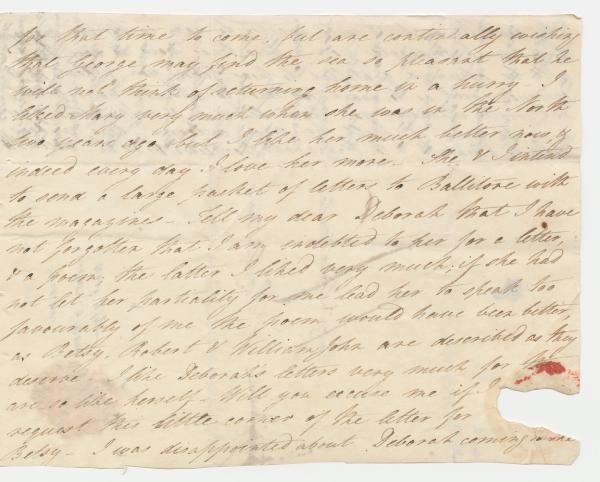 for that time to come, but are continually wishing
that George may find the sea so pleasant that he
will not think of returning home in a hurry - I
liked Mary very much when she was in the North
two years ago but I like her much better now &
indeed every day I love her more - She & I intend
to send a large packet of letters to Ballitore with
the magazines - Tell my dear Deborah that I have
not forgotten that I am indebted to her for a letter,
& a poem, the latter I liked very much, if she had
not let her partiality for me lead her to speak too
favourably of me the poem would have been better,
as Betsy, Robert & William John are described as they
deserve - I like Deborah's letters very much for they
are so like herself - Will you excuse me if I
request this little corner of the letter for
Betsy - I was disappointed about Deborah coming